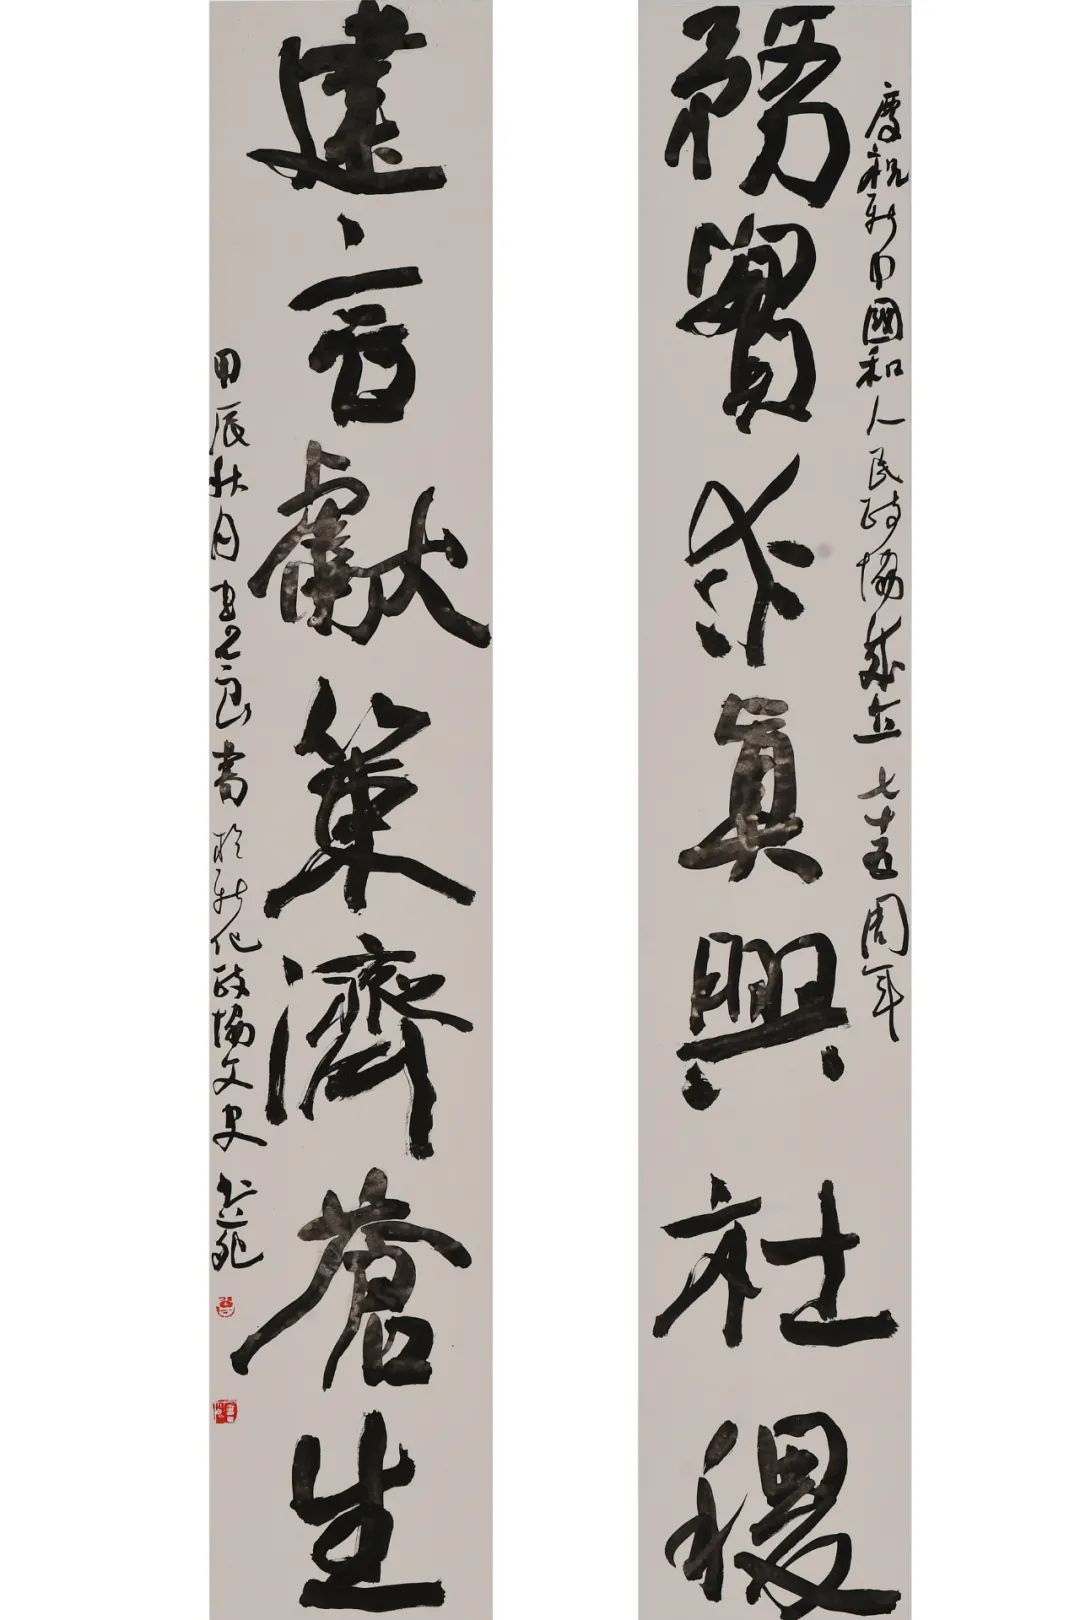 慶祝新中國和人民政協成立七十五周年
務實求真興社稷
建言獻策濟蒼生
甲辰秋月書於新化政協文史苑